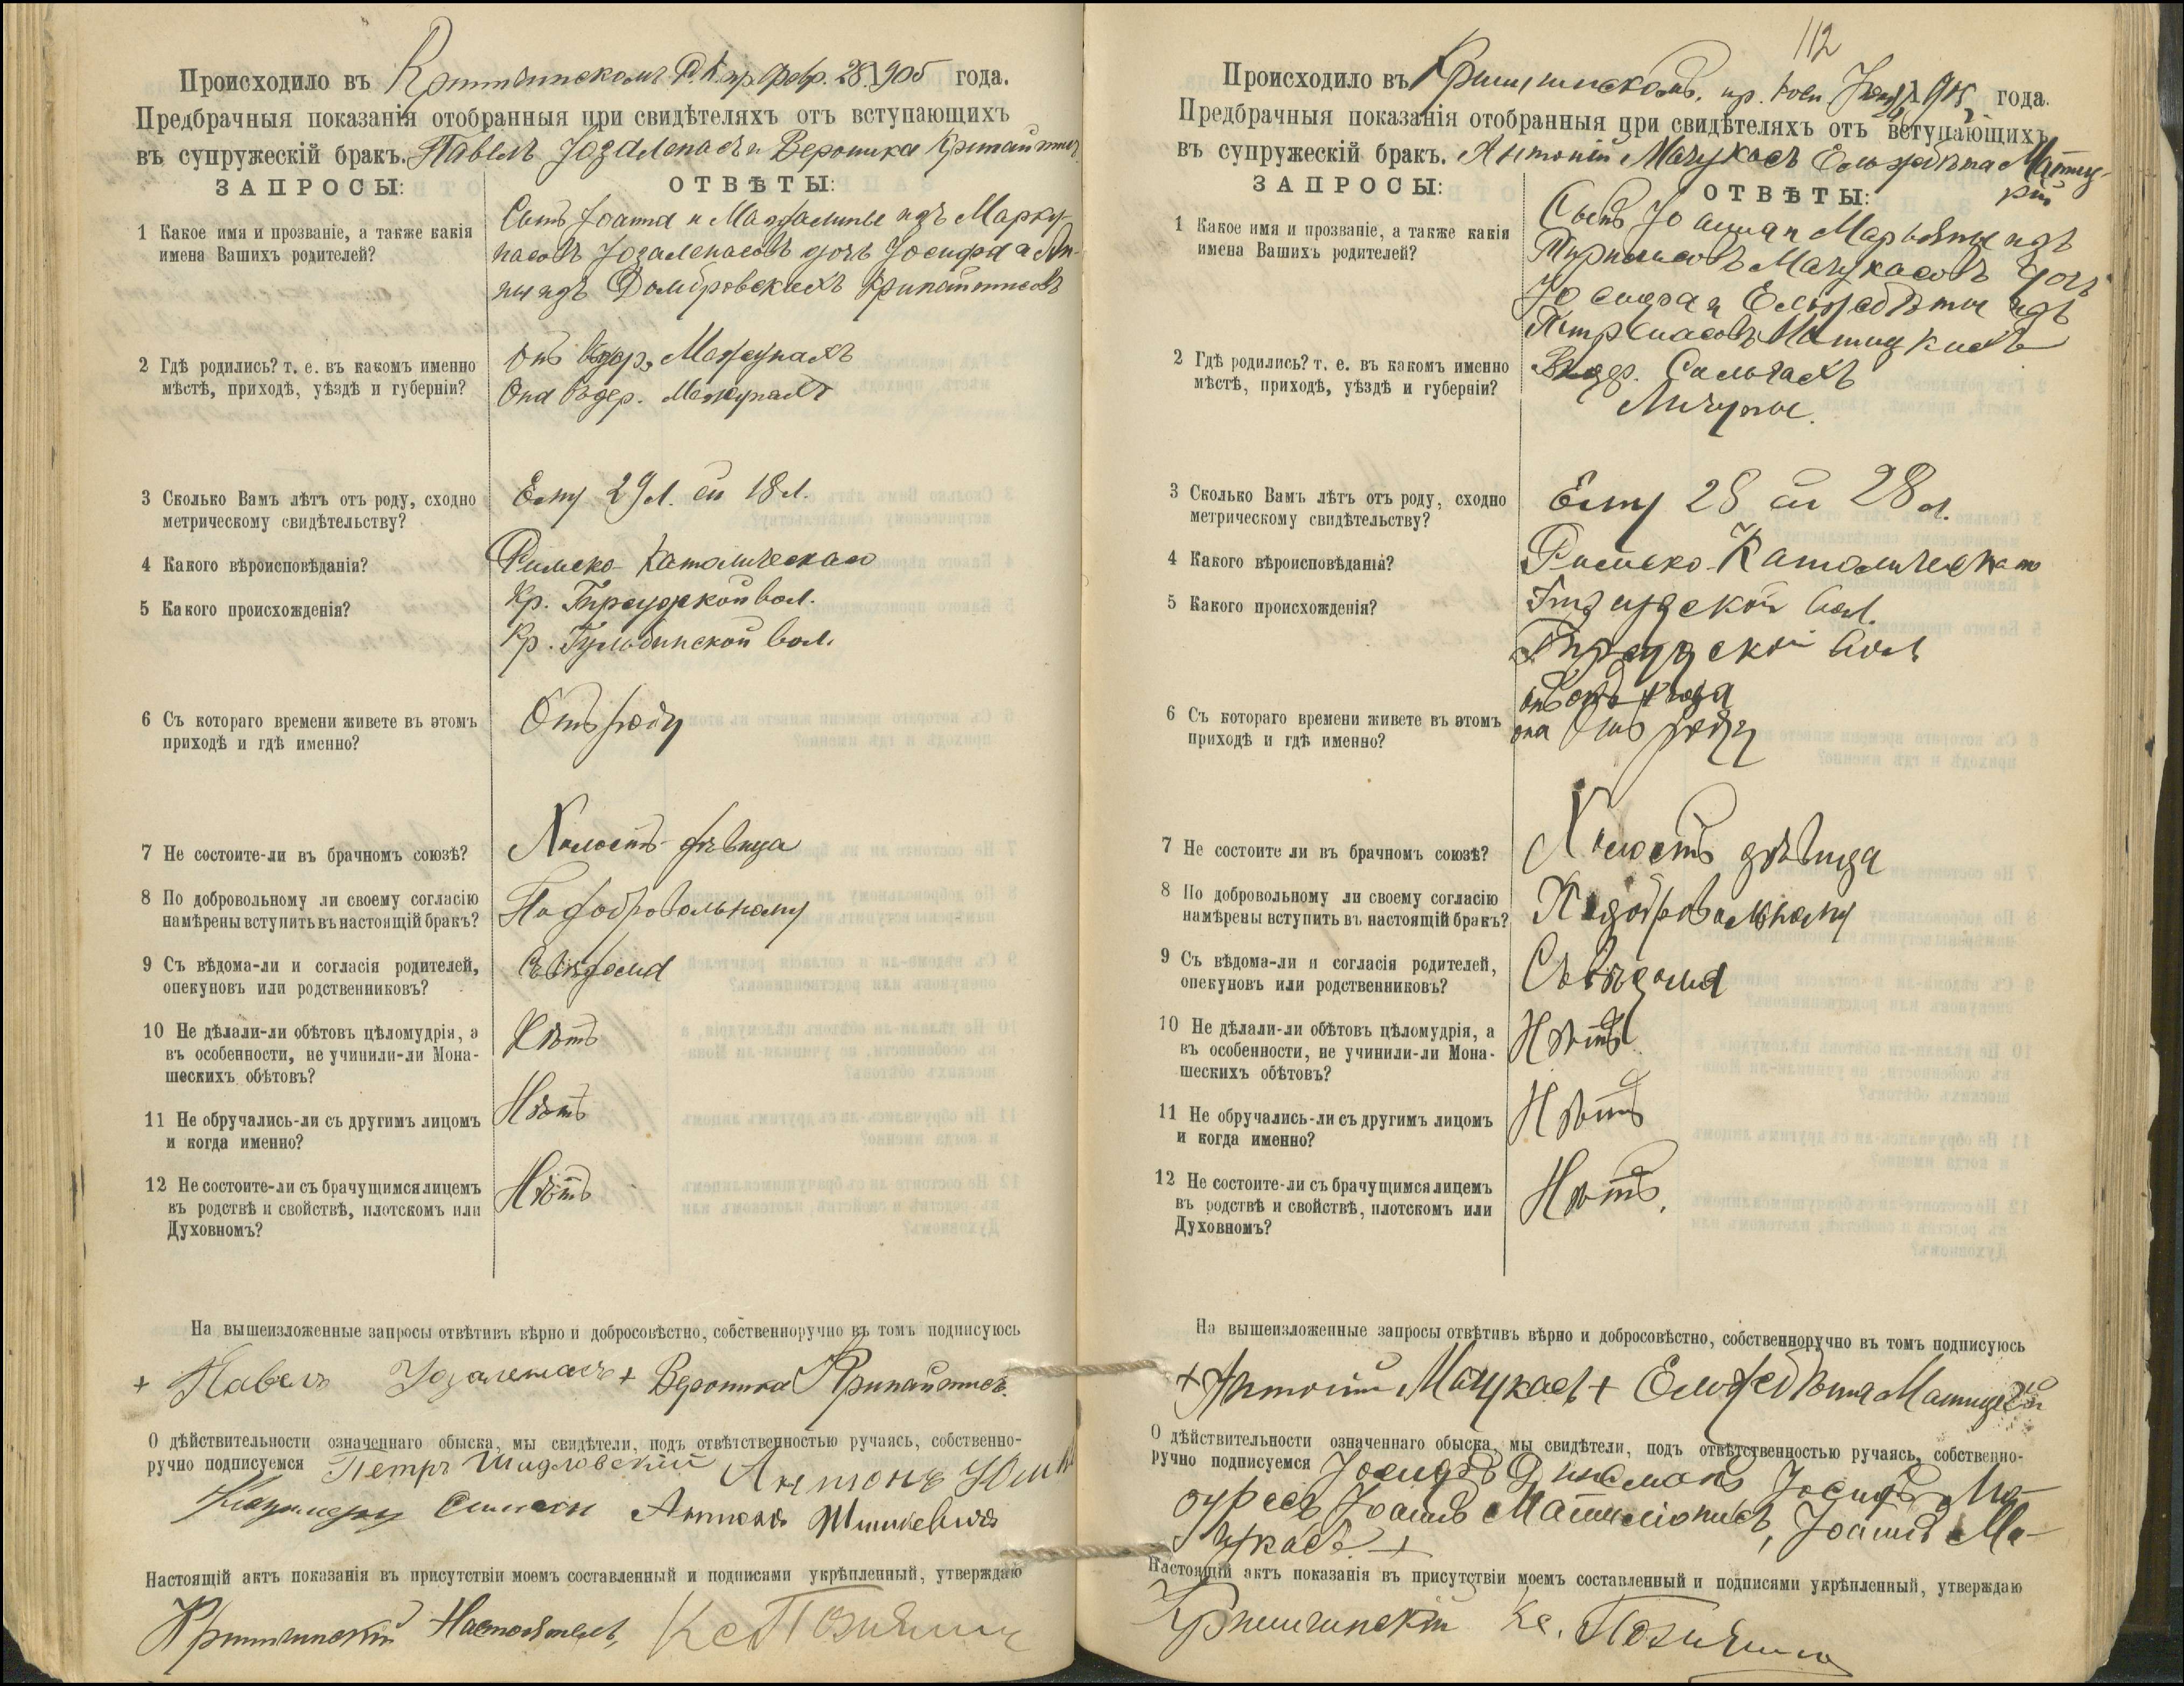 Происходило въ Р. К. пр. февр. 28 1905 года.
Предбрачныя показанія отобранныя при свидѣтеляхъ отъ вступающихъ
въ супружескій бракъ. Павелъ Юзаленасъ и Вероника
ЗАПРОСЫ:
ОТВѢТЫ:
1 Какое имя и прозваніе, а также какія
имена Вашихъ родителей?
Сынъ Іоанна и Магдалины изъ
Юзаленасовъ дочь Іосифа и Ан-
ны изъ Домбровскихъ
2 Гдѣ родились? т. е. въ какомъ именно
мѣстѣ, приходѣ, уѣздѣ и губерніи?
Онъ Въ дер.
Она въ дер.
3 Сколько Вамъ лѣтъ отъ роду, сходно
метрическому свидѣтельству?
Ему 29 л. ей 18 л.
4 Какого вѣроисповѣданія?
Римско-Католическаго
5 Какого происхожденія?
Кр. вол.
Кр. вол.
6 Съ котораго времени живете въ этомъ
приходѣ и гдѣ именно?
Отъ роду
7 Не состоите-ли въ брачномъ союзѣ?
Холостъ дѣвица
8 По добровольному ли своему согласію
намѣрены вступить въ настоящій бракъ?
По добровольному
9 Съ вѣдома-ли и согласія родителей,
опекуновъ или родственниковъ?
Съ вѣдома
10 Не дѣлали-ли обѣтовъ цѣломудрія, а
въ особенности, не учинили-ли Мона-
шескихъ обѣтовъ?
Нѣтъ
11 Не обручались-ли съ другимъ лицомъ
и когда именно?
Нѣтъ
12 Не состоите-ли съ брачущимся лицемъ
въ родствѣ и свойствѣ, плотскомъ или
Духовномъ?
Нѣтъ
На вышеизложенные запросы отвѣтивъ вѣрно и добросовѣстно, собственноручно въ томъ подписуюсь
+ Павелъ Юзаленасъ + Вероника
О дѣйствительности означеннаго обыска, мы свидѣтели, подъ отвѣтственностью ручаясь, собственно-
ручно подписуемся Петръ Шидловскій Антонъ
Антонъ
Настоящій актъ показанія въ присутствіи моемъ составленный и подписями укрѣпленный, утверждаю
Настоятель, Кс.
112
Происходило въ пр. 1905 года.
Предбрачныя показанія отобранныя при свидѣтеляхъ отъ вступающихъ
въ супружескій бракъ. Антоній Мачукасъ Ельжбѣта
ЗАПРОСЫ:
ОТВѢТЫ:
1 Какое имя и прозваніе, а также какія
имена Вашихъ родителей?
Сынъ Іоанна и Марьяны изъ
Мачукасовъ дочь
Іосифа и Ельжбѣты изъ
2 Гдѣ родились? т. е. въ какомъ именно
мѣстѣ, приходѣ, уѣздѣ и губерніи?
Въ дер.
3 Сколько Вамъ лѣтъ отъ роду, сходно
метрическому свидѣтельству?
Ему 28 ей 28 л.
4 Какого вѣроисповѣданія?
Римско-Католическаго
5 Какого происхожденія?
вол.
вол.
6 Съ котораго времени живете въ этомъ
приходѣ и гдѣ именно?
она отъ роду
7 Не состоите ли въ брачномъ союзѣ?
Холостъ дѣвица
8 По добровольному ли своему согласію
намѣрены вступить въ настоящій бракъ?
По добровольному
9 Съ вѣдома-ли и согласія родителей,
опекуновъ или родственниковъ?
Съ вѣдома
10 Не дѣлали-ли обѣтовъ цѣломудрія, а
въ особенности, не учинили-ли Мона-
шескихъ обѣтовъ?
Нѣтъ
11 Не обручались-ли съ другимъ лицомъ
и когда именно?
Нѣтъ
12 Не состоите-ли съ брачущимся лицемъ
въ родствѣ и свойствѣ, плотскомъ или
Духовномъ?
Нѣтъ.
На вышеизложенные запросы отвѣтивъ вѣрно и добросовѣстно, собственноручно въ томъ подписуюсь
+ Антоній Мачукасъ + Ельжбѣта
О дѣйствительности означеннаго обыска, мы свидѣтели, подъ отвѣтственностью ручаясь, собственно-
ручно подписуемся Іосифъ Іосифъ Ма-
Іоаннъ Іоаннъ Ма-
чукасъ +
Настоящій актъ показанія въ присутствіи моемъ составленный и подписями укрѣпленный, утверждаю
Кс.